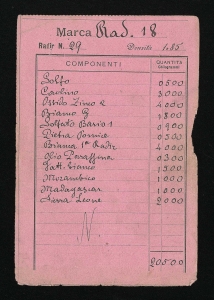 Marca Rad. 18
Radir N. 29 Densità 1.85
COMPONENTI QUANTITÀ
Solfo 0500
Caolino 3000
Ossido Zinco 4000
Bianco 3800
Solfato Bario 1 0900
Pietra Pomice 0400
Bianca 1ª Radir 4000
Olio Paraffina 0300
Fatt. bianco 1500
Mozambico 1000
Madagascar 1000
Sierra Leone 2000
N.
20500